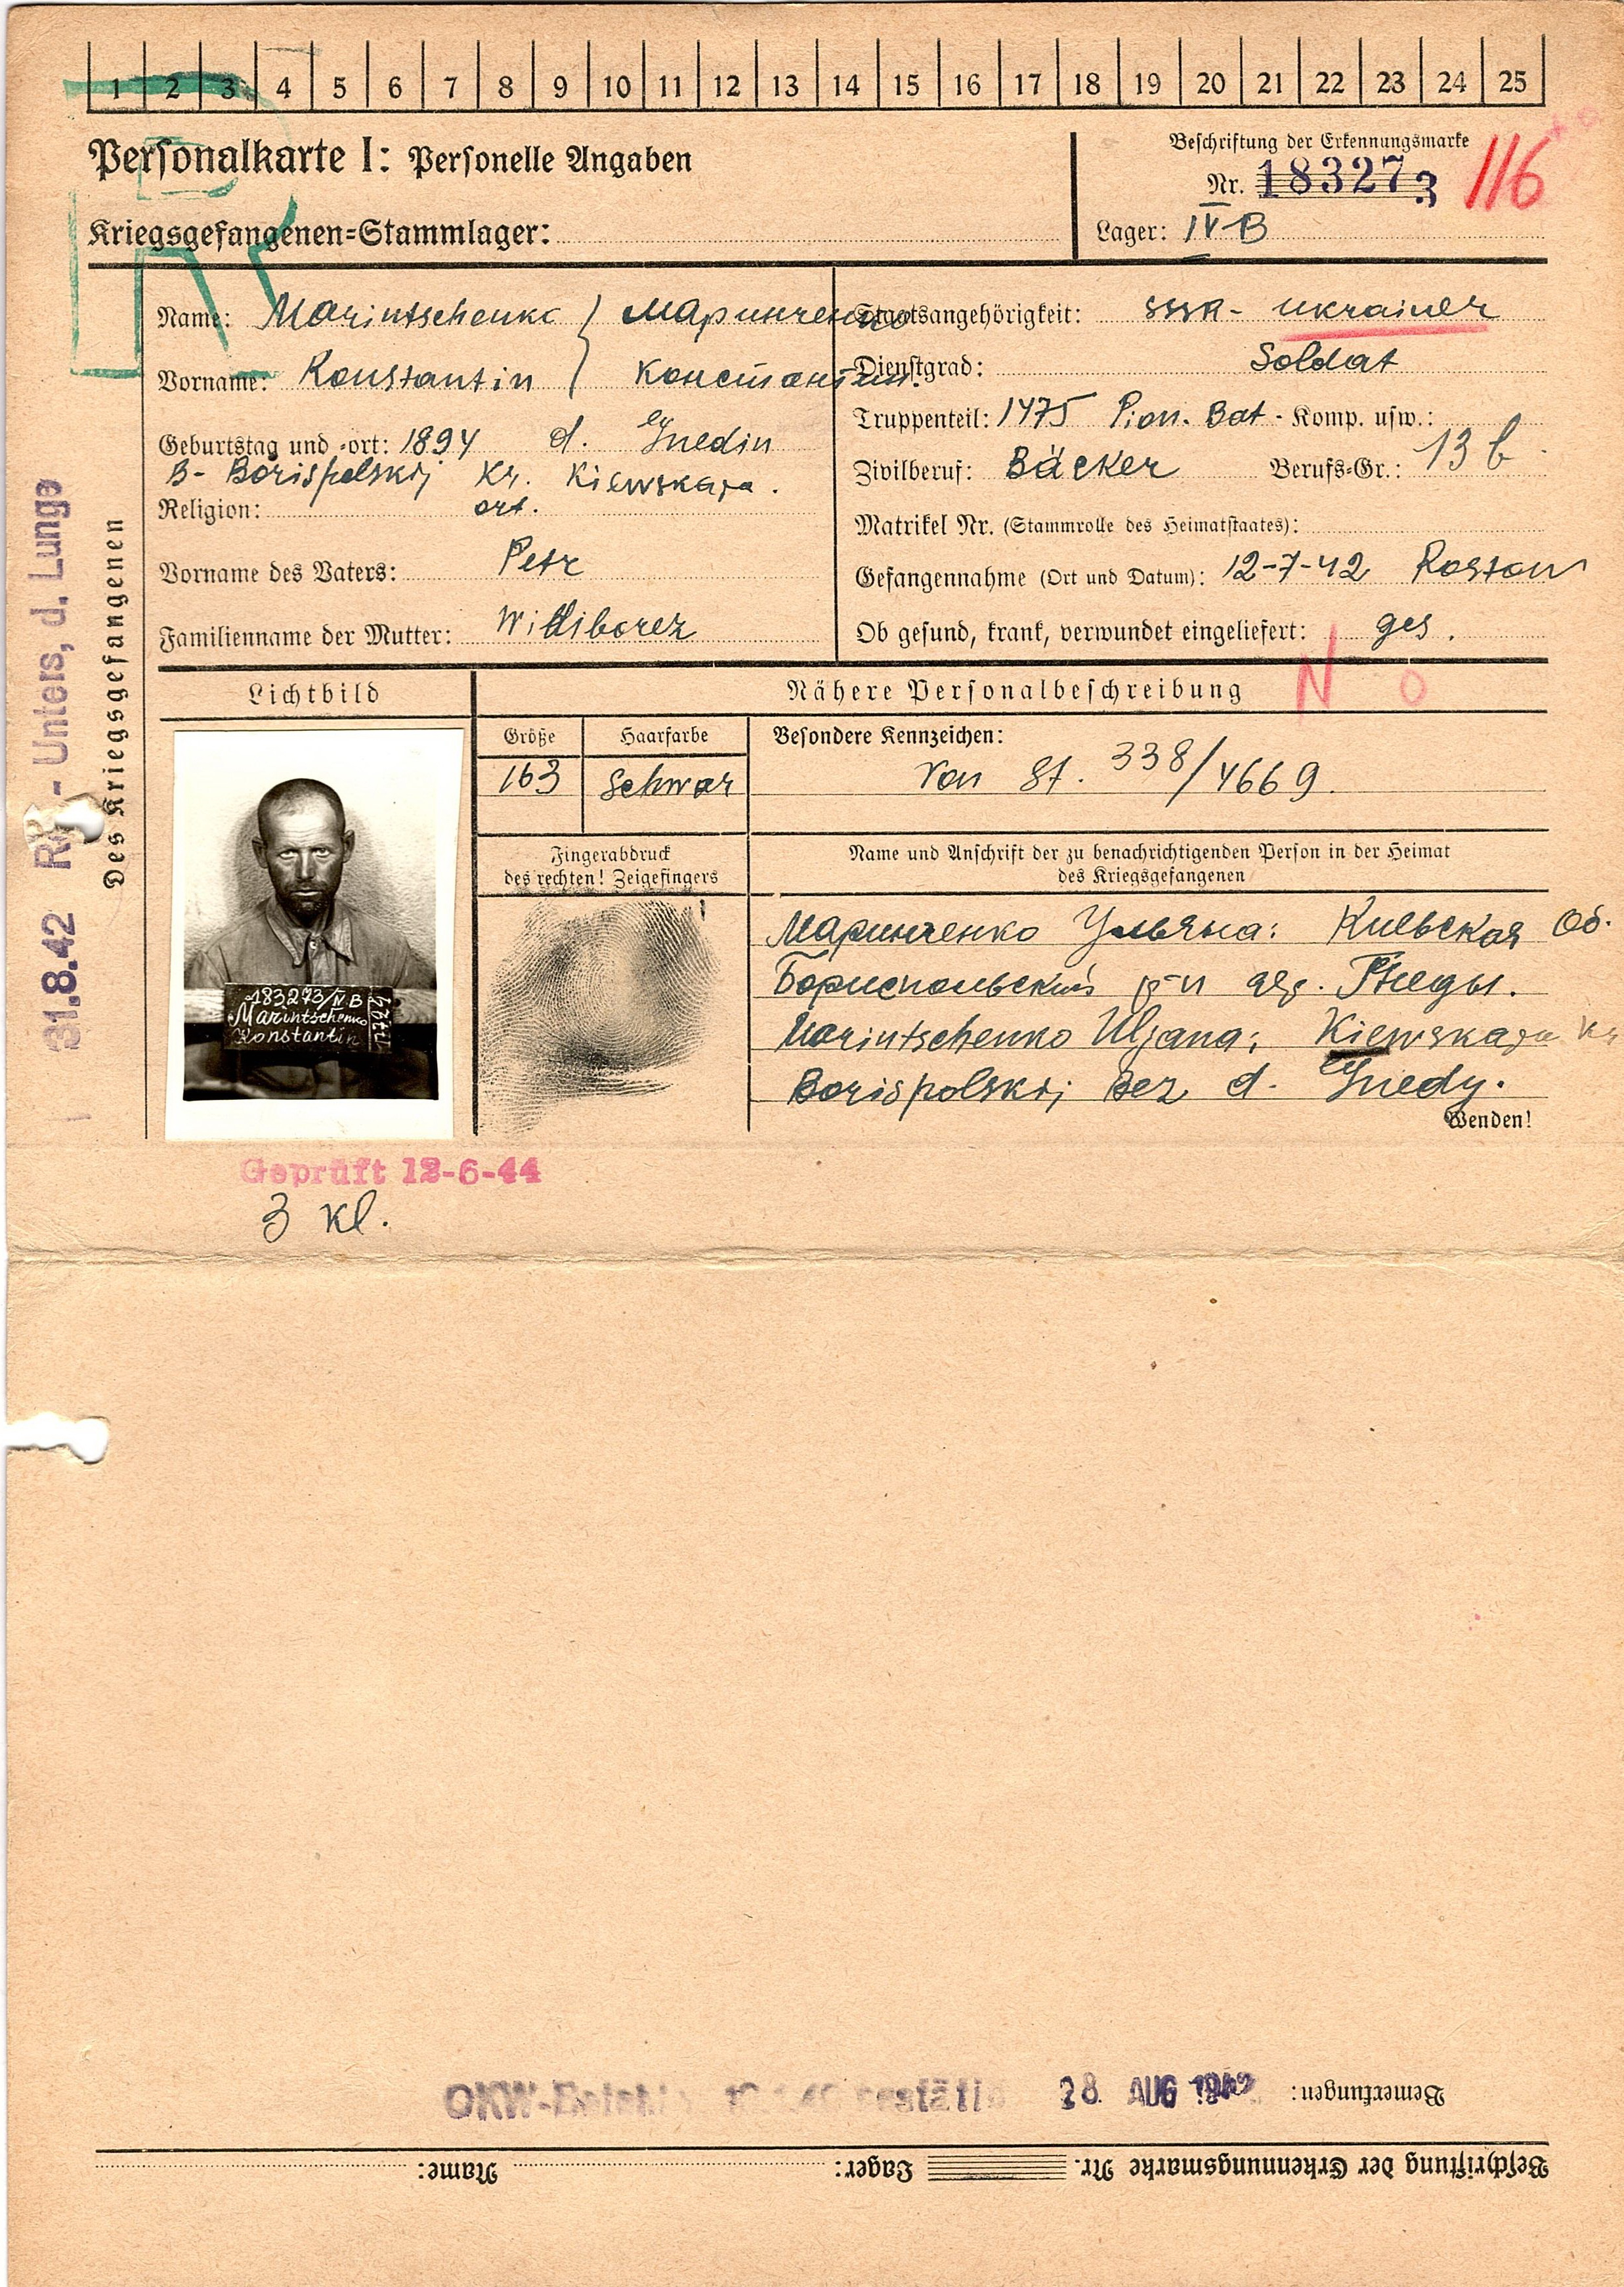 1 2 3 4 5 6 7 8 9 10 11 12 13 14 15 16 17 18 19 20 21 22 23 24 25
Personalkarte I: Personelle Angaben
Beschriftung der Erkennungsmarke
Nr. 183273
116
Kriegsgefangenen-Stammlager:
Lager: IV B
Name: Marintschenko ) Маринченко
Staatsangehörigkeit: SSSR - Ukrainer
Vorname: Konstantin ) Константин.
Dienstgrad: Soldat
Truppenteil: 1475 Pion. Bat - Komp. usw.:
Geburtstag und -ort: 1894 d. Gnedin
B- Borispolskij Kr. Kiewskaja.
Zivilberuf: Bäcker Berufs-Gr.: 13 b
Religion: ort.
Matrikel Nr. (Stammrolle des Heimatstaates):
Vorname des Vaters: Petr
Gefangennahme (Ort und Datum): 12-7-42 Rostow
Familienname der Mutter:
Ob gesund, krank, verwundet eingeliefert: ges.
Des Kriegsgefangenen
31.8.42 - Unters, d. Lunge
Lichtbild
Nähere Personalbeschreibung
N O
Größe
Haarfarbe
Besondere Kennzeichen:
163
Schwar
Von St. 338/4669.
Fingerabdruck
des rechten! Zeigefingers
Name und Anschrift der zu benachrichtigenden Person in der Heimat
des Kriegsgefangenen
183273/IV B
Marintschenko
Konstantin
Маринченко Ульяна: Киевская Об.
Бориспольский р-н дер. Гнеды.
Marintschenko Uljana: Kiewskaja Kr
Borispolskij Bez d. Gnedy.
Wenden!
Geprüft 12-6-44
3 Kl.
Bemerkungen:
28. AUG 1942
OKW-
Beschriftung der Erkennungsmarke Nr. Lager: Name: